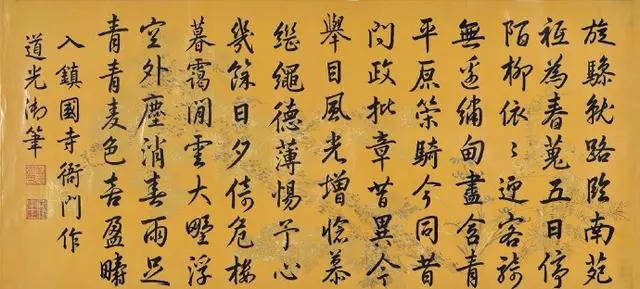 旋驂就路臨南苑
祇為春蒐五日停
陌柳依〻迎客
無邊繡甸盡含青
平原策騎今同昔
問政批章昔異今
舉目風光增慕
继繩德薄惕予心
幾餘日夕倚危樓
暮靄閒雲大野浮
空外塵消春雨足
青青麦色喜盈疇
入鎮國寺衙門作
道光御筆